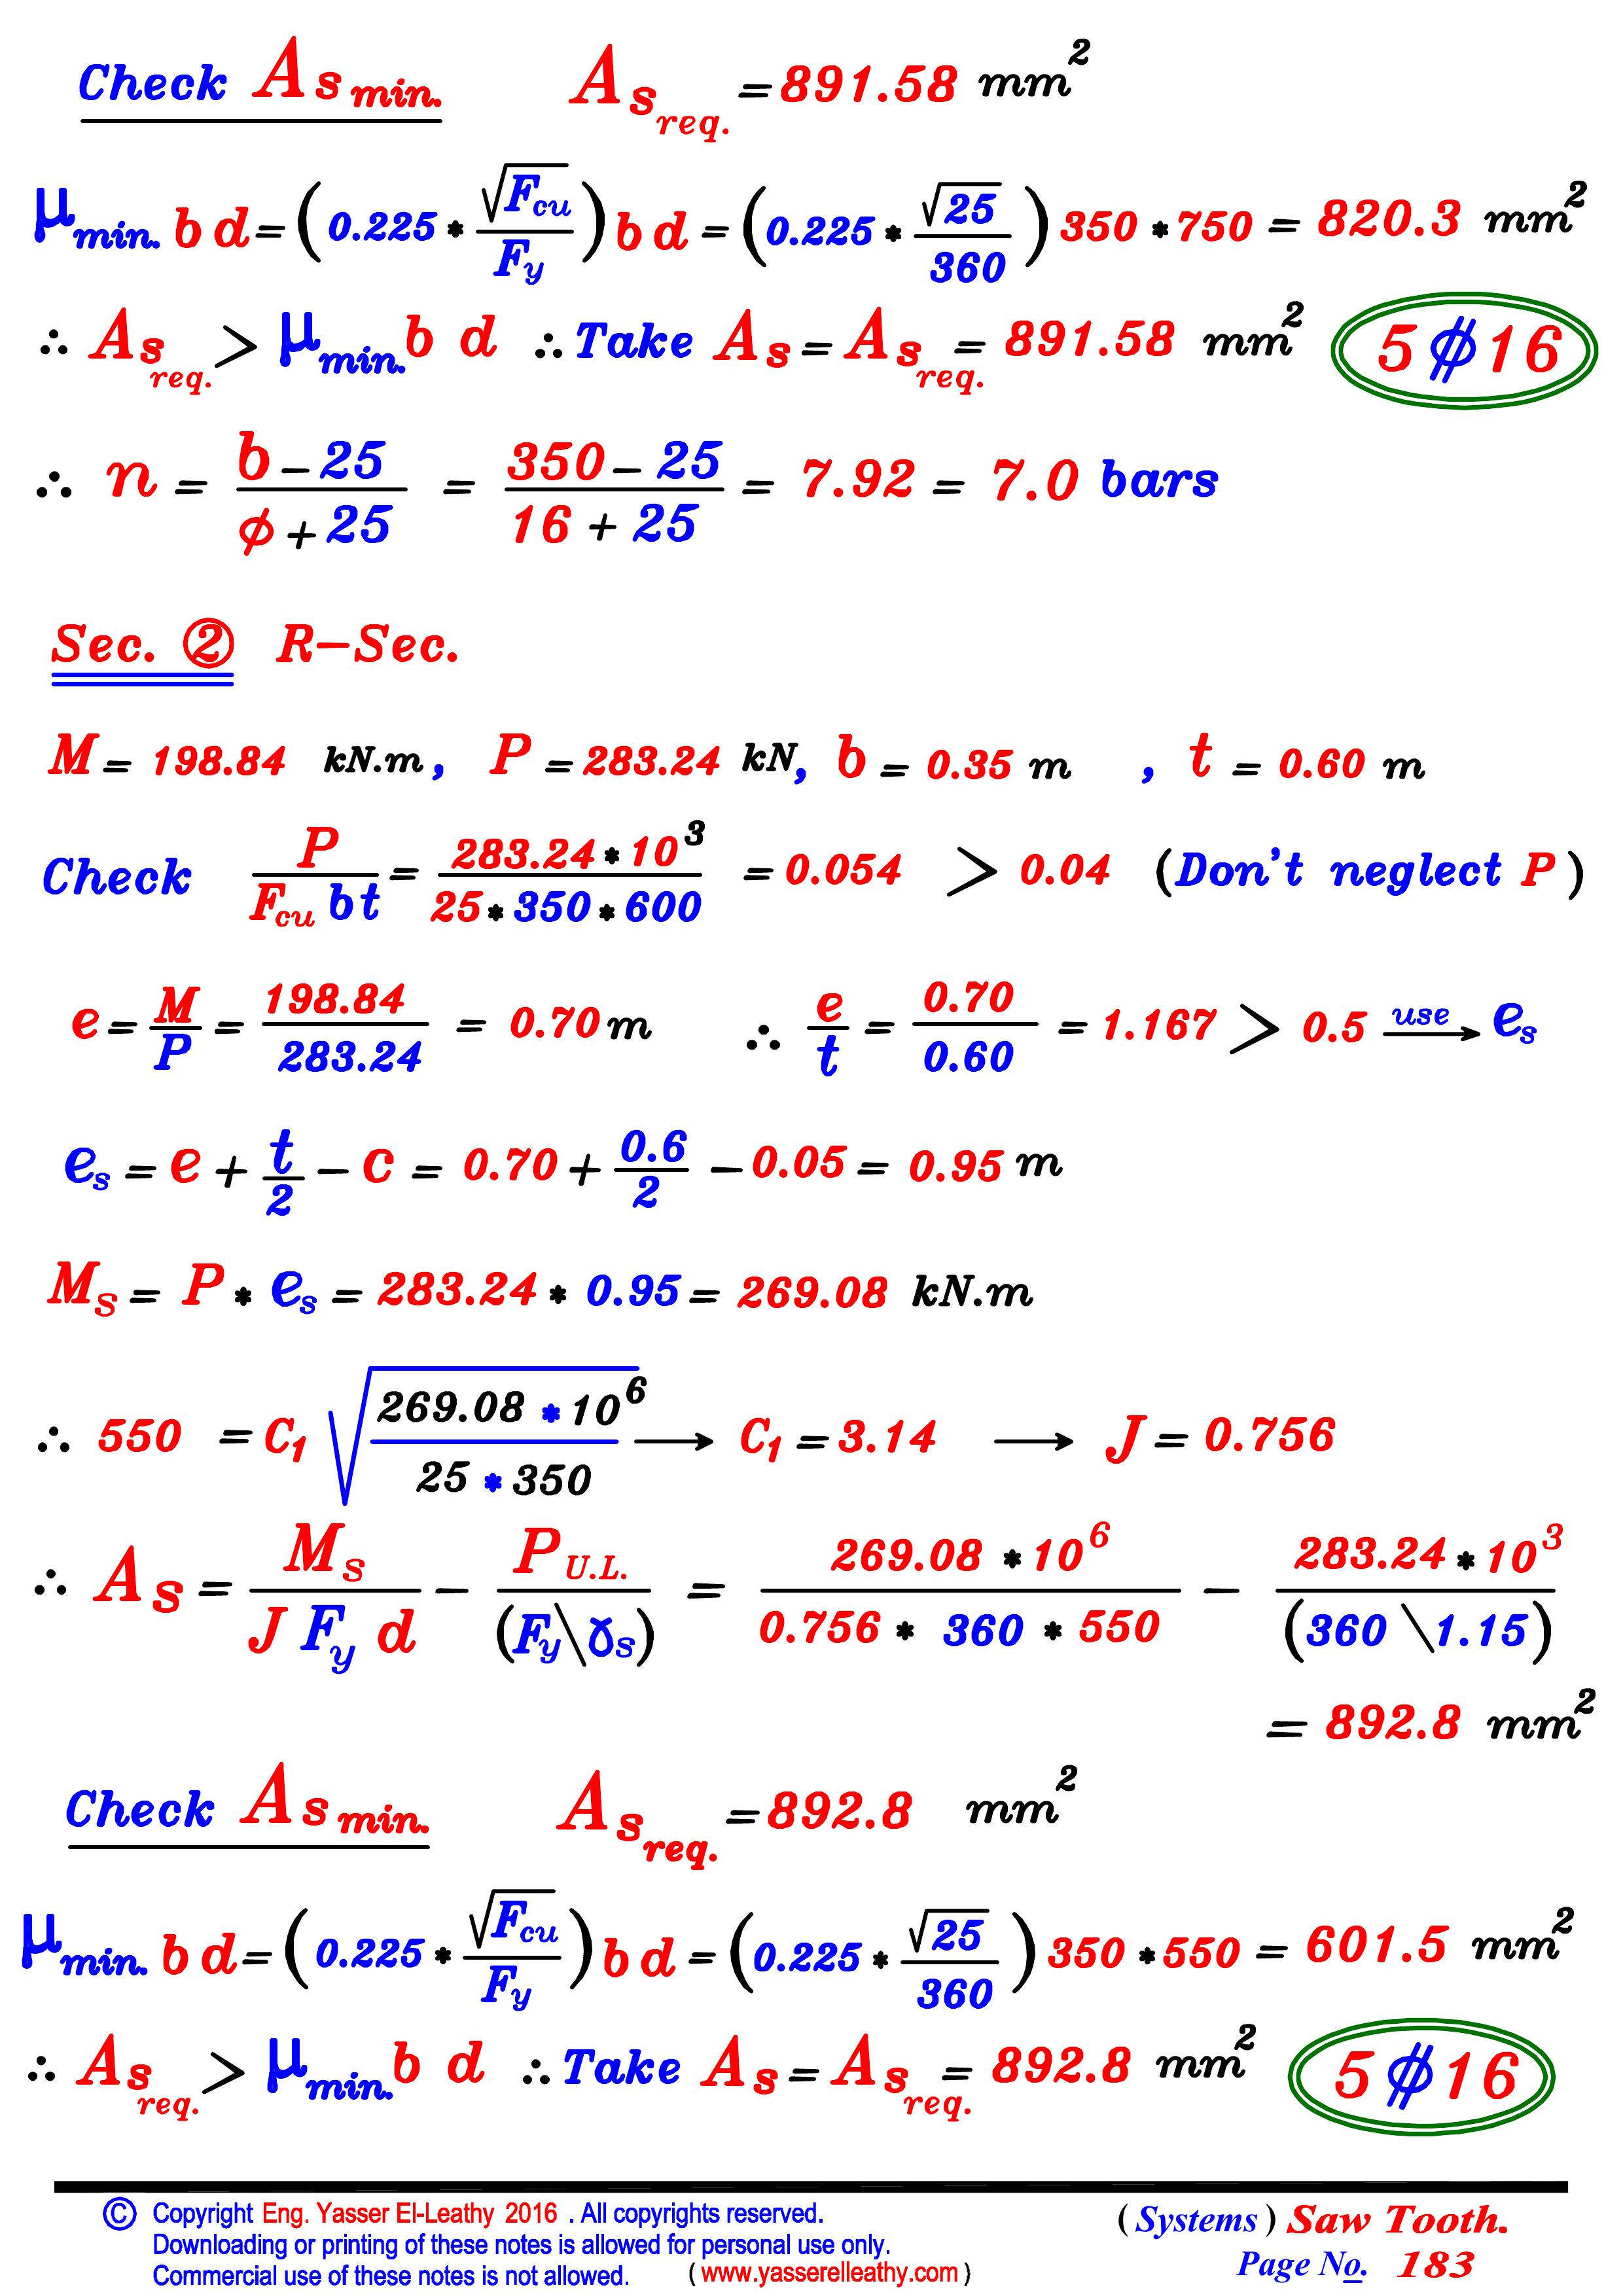 Check As min. As req. = 891.58 mm²
μ min. b d = ( 0.225 * √Fcu / Fy ) b d = ( 0.225 * √25 / 360 ) 350 * 750 = 820.3 mm²
∴ As req. > μ min. b d ∴ Take As = As req. = 891.58 mm² 5 ⌀ 16
∴ n = b - 25 / ϕ + 25 = 350 - 25 / 16 + 25 = 7.92 = 7.0 bars
Sec. ② R-Sec.
M = 198.84 kN.m , P = 283.24 kN, b = 0.35 m , t = 0.60 m
Check P / Fcu b t = 283.24 * 10³ / 25 * 350 * 600 = 0.054 > 0.04 (Don't neglect P)
e = M / P = 198.84 / 283.24 = 0.70 m ∴ e / t = 0.70 / 0.60 = 1.167 > 0.5 use → es
es = e + t / 2 - c = 0.70 + 0.6 / 2 - 0.05 = 0.95 m
Ms = P * es = 283.24 * 0.95 = 269.08 kN.m
∴ 550 = C1 √ 269.08 * 10⁶ / 25 * 350 → C1 = 3.14 → J = 0.756
∴ As = Ms / J Fy d - P U.L. / (Fy \ γs) = 269.08 * 10⁶ / 0.756 * 360 * 550 - 283.24 * 10³ / (360 \ 1.15)
= 892.8 mm²
Check As min. As req. = 892.8 mm²
μ min. b d = ( 0.225 * √Fcu / Fy ) b d = ( 0.225 * √25 / 360 ) 350 * 550 = 601.5 mm²
∴ As req. > μ min. b d ∴ Take As = As req. = 892.8 mm² 5 ⌀ 16
© Copyright Eng. Yasser El-Leathy 2016 . All copyrights reserved.
Downloading or printing of these notes is allowed for personal use only.
Commercial use of these notes is not allowed. ( www.yasserelleathy.com )
( Systems ) Saw Tooth.
Page No. 183